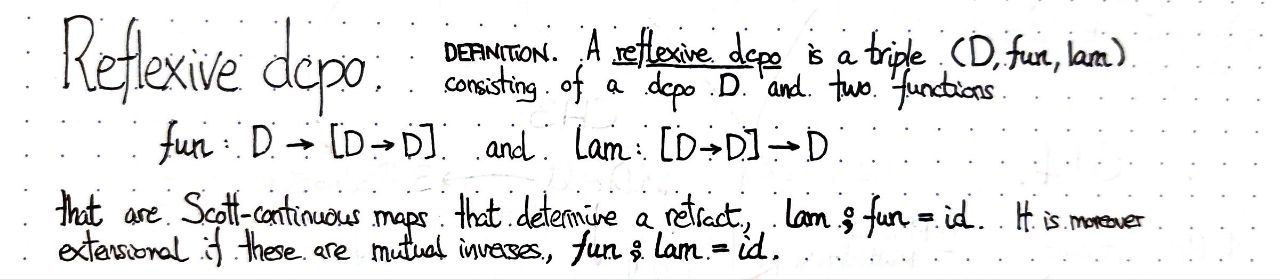 Reflexive dcpo.
DEFINITION. A reflexive dcpo is a triple (D, fun, lam)
consisting of a dcpo D and two functions
fun : D → [D→D] and lam : [D→D] → D
that are Scott-continuous maps that determine a retract, lam ⨟ fun = id. It is moreover
extensional if these are mutual inverses, fun ⨟ lam = id.